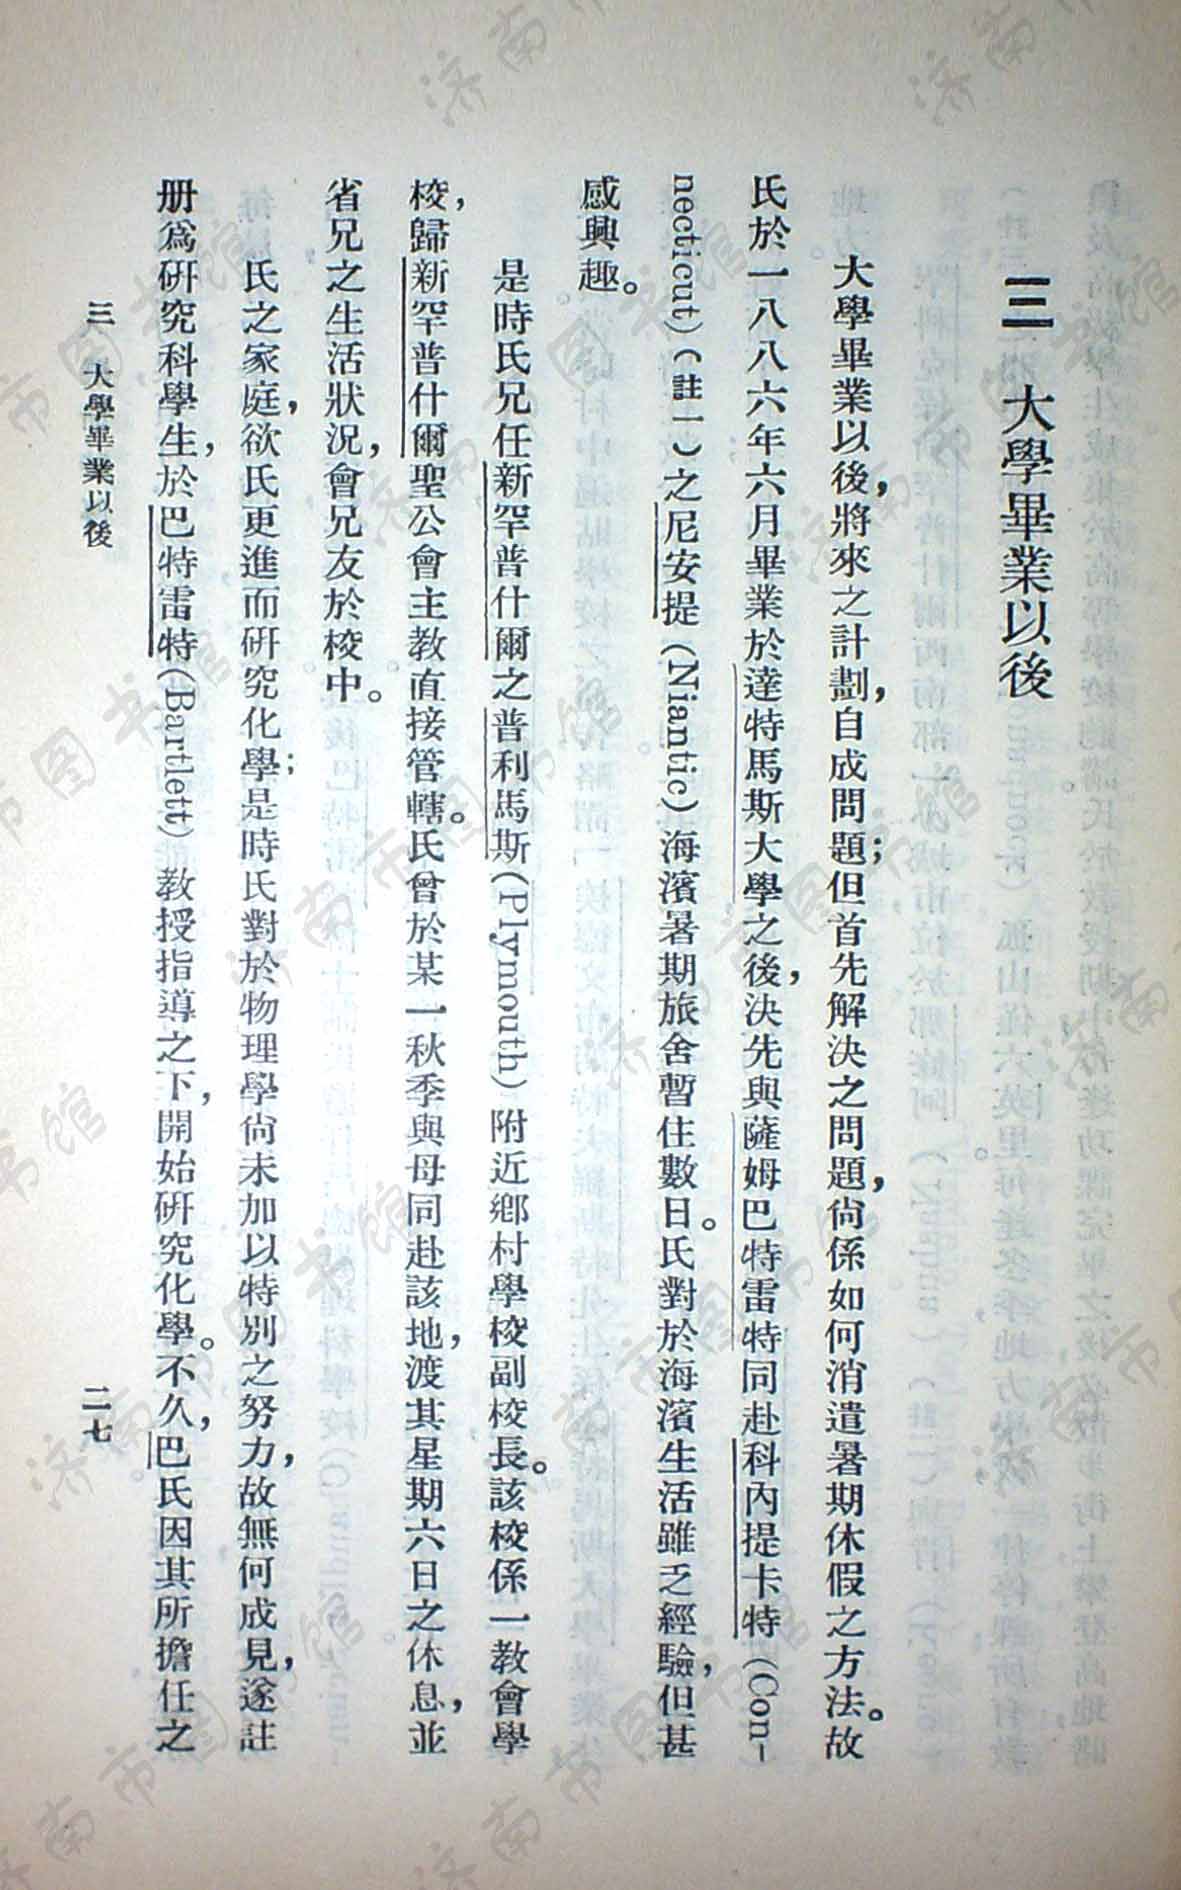 三　大學畢業以後
大學畢業以後，將來之計劃，自成問題；但首先解決之問題，尙係如何消遣暑期休假之方法。故
氏於一八八六年六月畢業於達特馬斯大學之後，決先與薩姆巴特雷特同赴科內提卡特（Con-
necticut）（註一）之尼安提（Niantic）海濱暑期旅舍暫住數日。氏對於海濱生活雖乏經驗，但甚
感興趣。
是時氏兄任新罕普什爾之普利馬斯（Plymouth）附近鄕村學校副校長。該校係一教會學
校，歸新罕普什爾聖公會主教直接管轄。氏曾於某一秋季與母同赴該地，渡其星期六日之休息，並
省兄之生活狀況，會兄友於校中。
氏之家庭，欲氏更進而硏究化學；是時氏對於物理學尙未加以特別之努力，故無何成見，遂註
册爲硏究科學生，於巴特雷特（Bartlett）教授指導之下，開始硏究化學。不久，巴氏因其所擔任之
三　大學畢業以後
二七
济南市图书馆